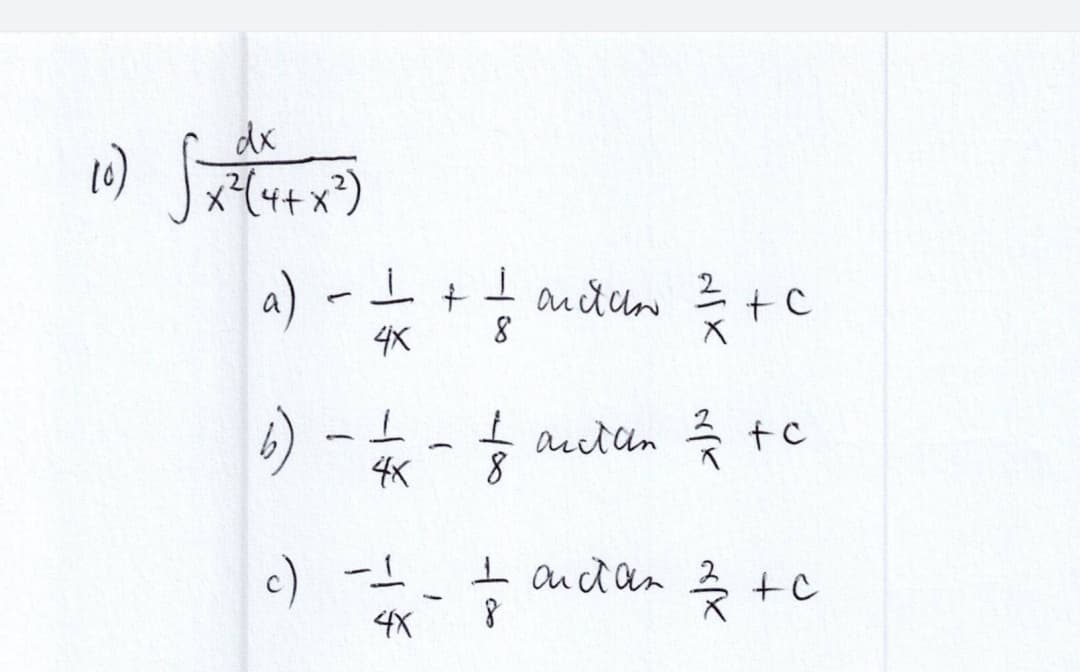 10) ∫ dx / x²(4+x²)
a) - 1/4x + 1/8 arctan 2/x + c
b) - 1/4x - 1/8 arctan 2/x + c
c) -1/4x - 1/8 arctan 2/x + c